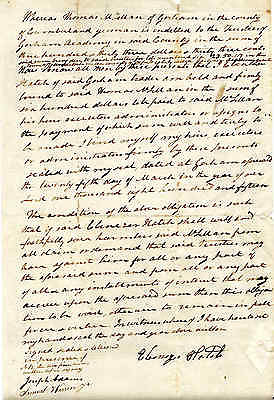 Whereas Thomas Millan of Gorham in the county
of Cumberland yeoman is indebted to the Trustees of
Gorham Academy in said County in the sum of
nine hundred & thirty three dollars & thirty three cents
Now Know all Men by these presents that I Ebenezer
Hatch of said Gorham trader am held and firmly
bound to said Thomas McLellan in the sum of
six hundred dollars to be paid to said McLellan
his heirs executors administrators or assigns to
the payment of which sum well and truly to
be made I bind myself my heirs executors
or administrators firmly by these presents
sealed with my seal dated at Gorham aforesaid
the twenty fifth day of March in the year of our
Lord one thousand eight hundred and fifteen
The condition of the above obligation is such
that if said Ebenezer Hatch shall well and
faithfully save harmless said McLellan from
all claim or demand that said Trustees may
have against him for all or any part of
the aforesaid sum and from all or any part
of all or any installments of interest that may
accrue upon the aforesaid sum then this obliga
tion to be void otherwise to remain in full
force & virtue. In witness whereof I have hereunto
my hand & seal the day and year above written
Signed sealed & delivered
in presence of
Joseph Adams
Ebenezr Hatch